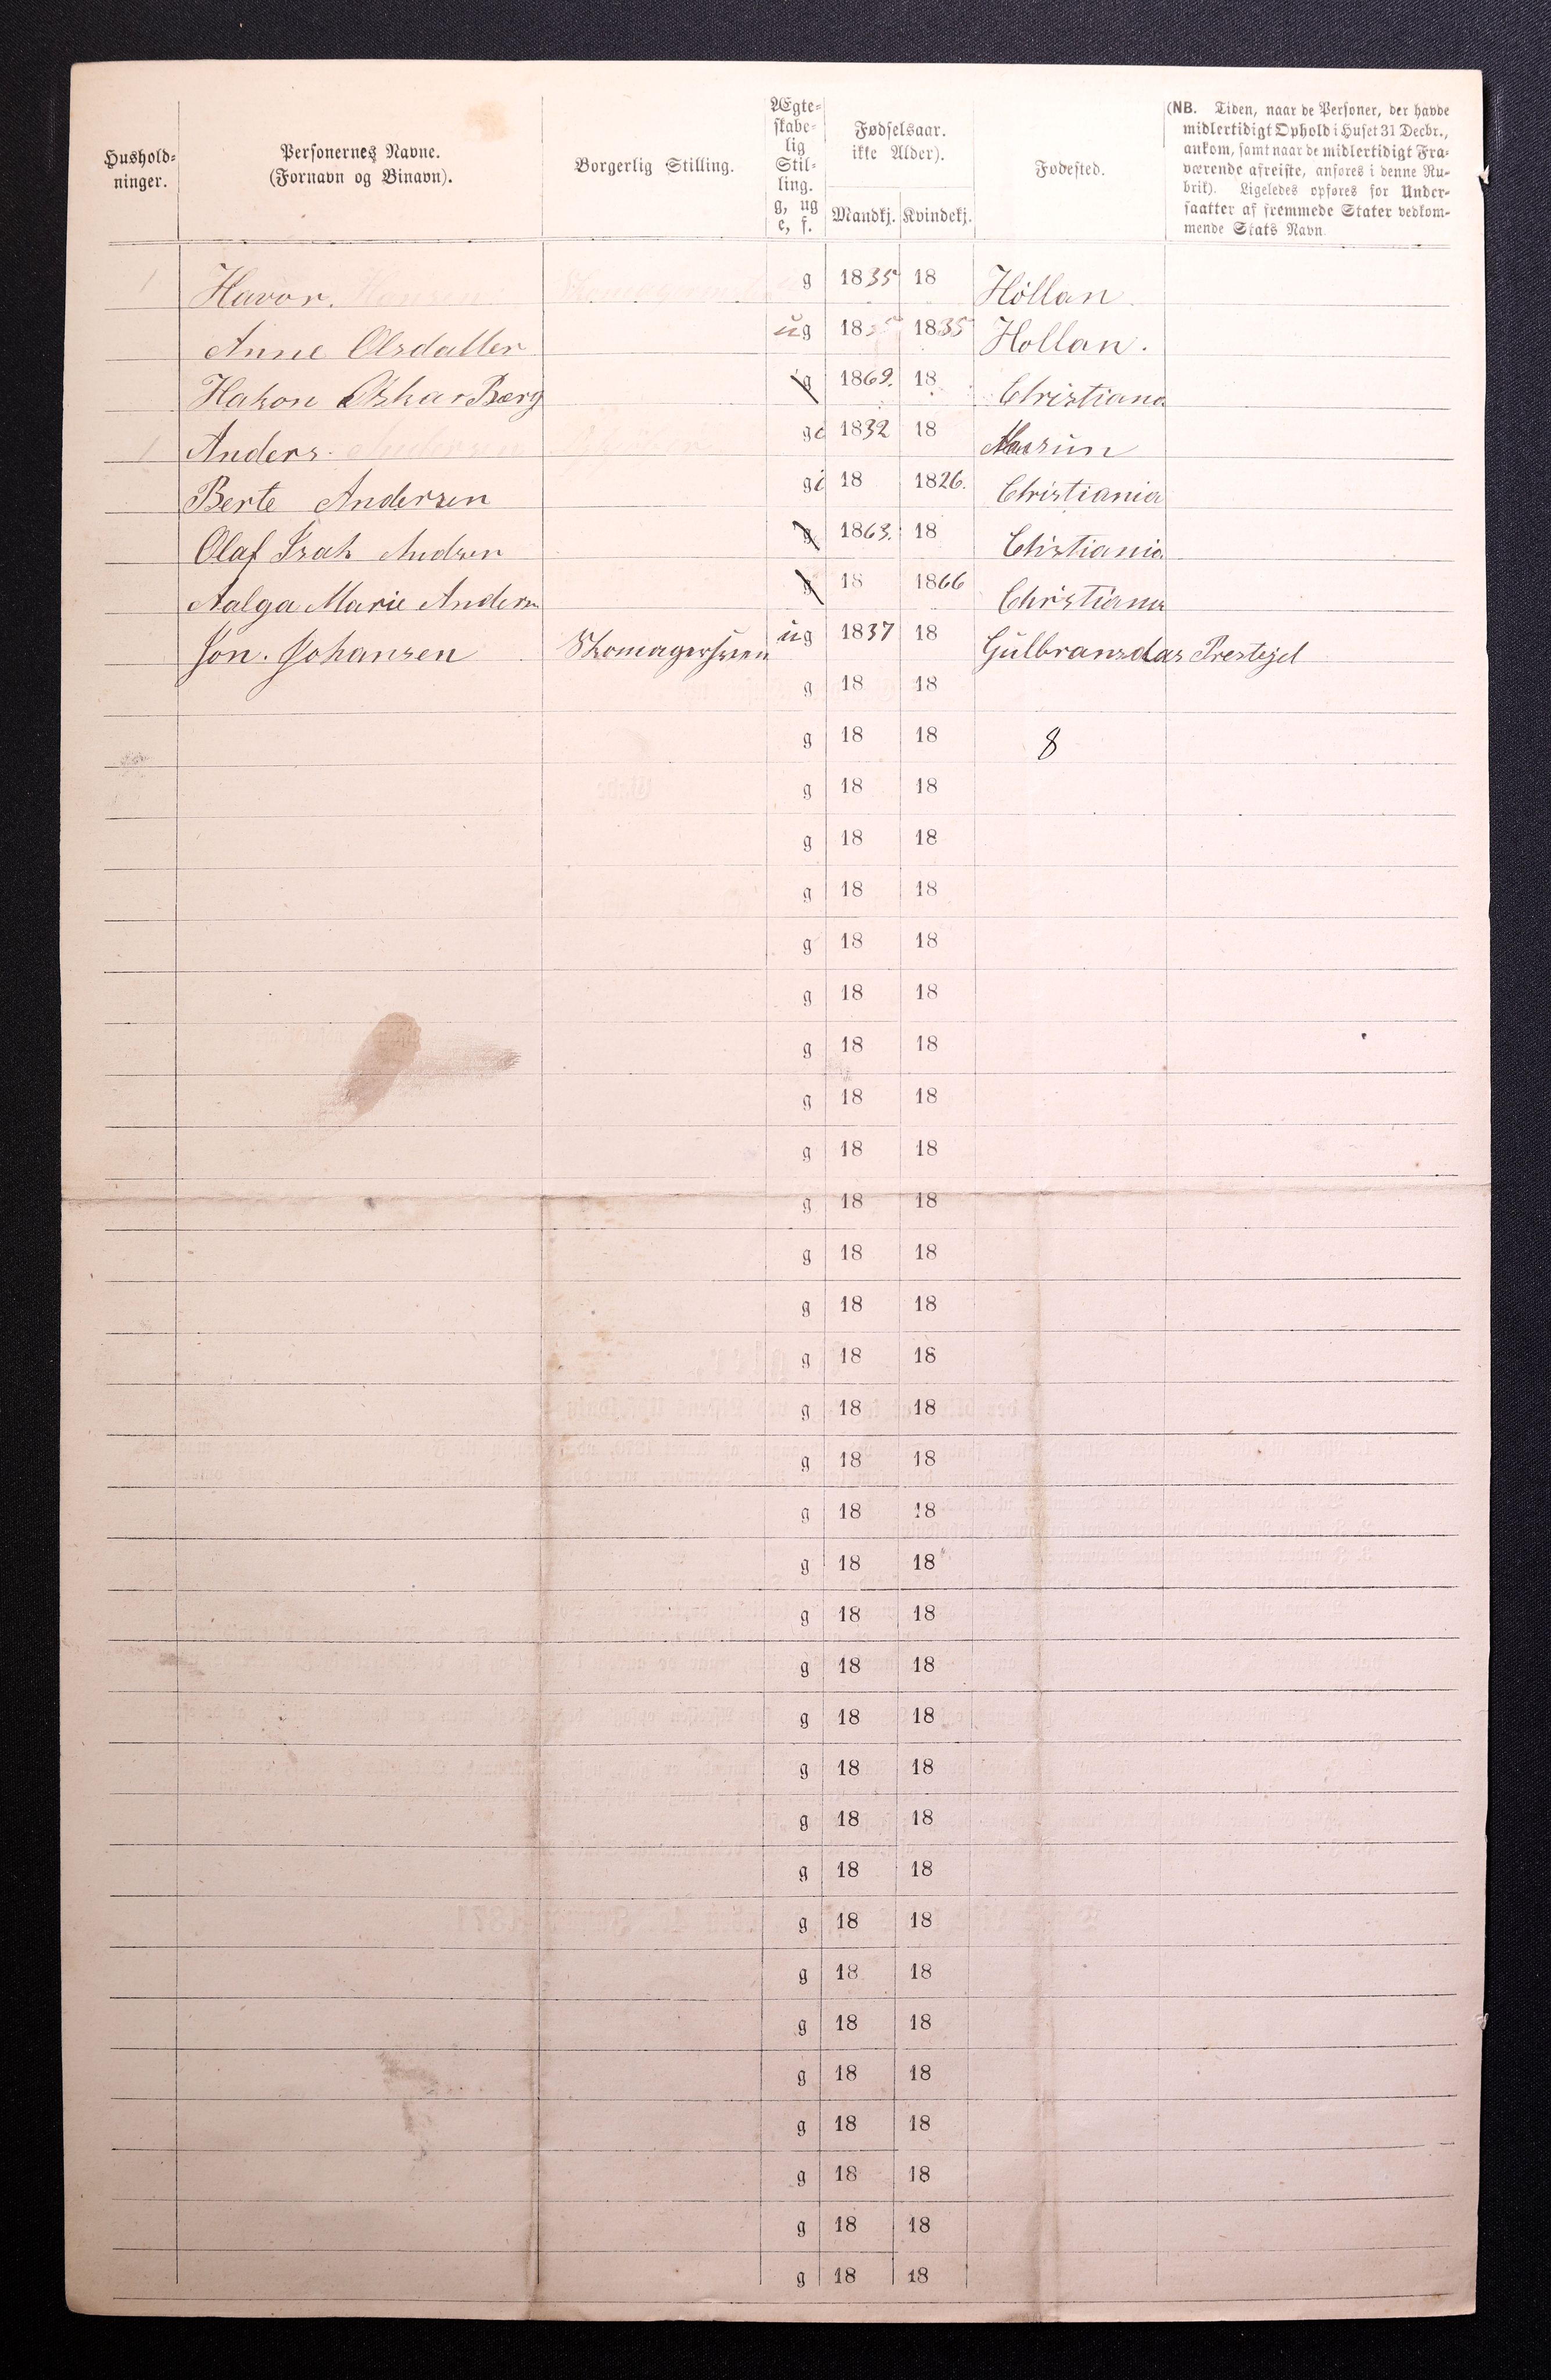 Hushold-
ninger.
Personernes Navne.
(Fornavn og Binavn).
Borgerlig Stilling.
Ægte-
skabe-
lig
Stil-
ling.
g, ug
e, f.
Fødselsaar.
ikke Alder).
Mandkj. Kvindekj.
Fødested.
(NB. Tiden, naar de Personer, der havde
midlertidigt Ophold i Huset 31 Decbr.,
ankom, samt naar de midlertidigt Fra-
værende afreiste, anføres i denne Ru-
brik). Ligeledes opføres for Under-
saatter af fremmede Stater vedkom-
mende Stats Navn
1 Havor. Hansen g 1835 18 Höllan
Anne Olsdatter ug 18 1835 Hollan.
Hakon Oskar Bærg g 1869. 18 Christiana
1 Anders Andersen ge 1832 18
Berte Andersen gi 18 1826. Christiania
Olaf Isak Andsen g 1863. 18 Chistiania
Aalga Marie Andersn g 18 1866 Christiania
Jon. Johansen Skomagersven ug 1837 18 Gulbransdas Prestejel
g 18 18
g 18 18 8
g 18 18
g 18 18
g 18 18
g 18 18
g 18 18
g 18 18
g 18 18
g 18 18
g 18 18
g 18 18
g 18 18
g 18 18
g 18 18
g 18 18
g 18 18
g 18 18
g 18 18
g 18 18
g 18 18
g 18 18
g 18 18
g 18 18
g 18 18
g 18 18
g 18 18
g 18 18
g 18 18
g 18 18
g 18 18
g 18 18